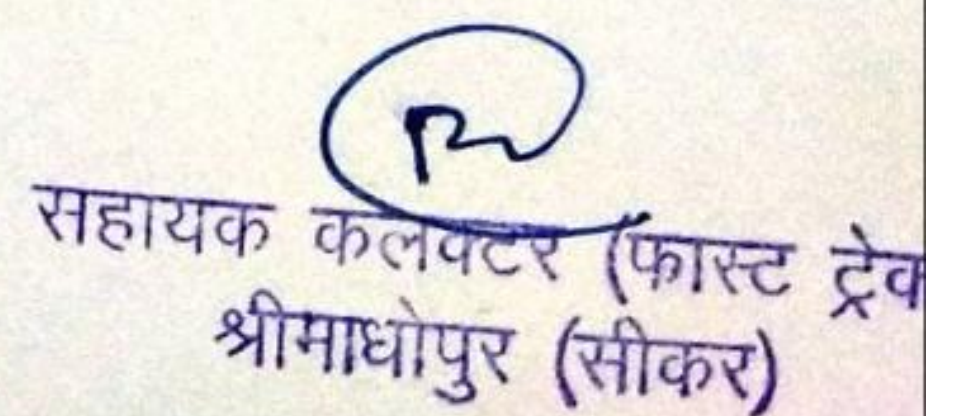 सहायक कलक्टर (फास्ट ट्रेक
श्रीमाधोपुर (सीकर)